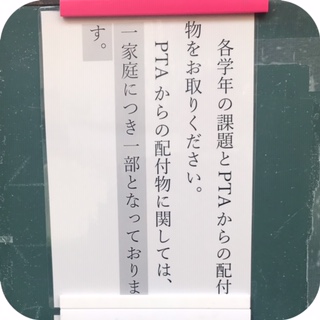 各学年の課題とPTAからの配付
物をお取りください。
PTAからの配付物に関しては、
一家庭につき一部となっておりま
す。